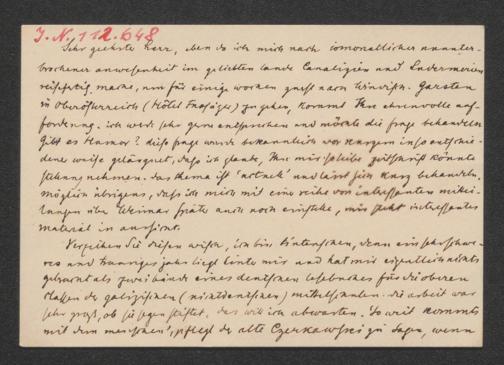 J. N. 112.648
Sehr geehrter Herr, eben da ich mich nach iomonatlicher ununter-
brochener anwesenheit im geliebten lande Canaligien und Lodermorien
reisefertig mache, um für einige wochen zuerst nach Windisch. Garsten
in Oberösterreich (Hôtel) zu gehen, kommt Ihre ehrenvolle auf-
forderung. ich werde sehr gern entsprechen und möchte die frage behandeln
Gibt es Humor? diese frage wurde bekanntlich vor kurzem in so entschie-
dener weise geläugnet, dass ich glaube, Ihre zeitschrift könnte
stellung nehmen. das thema ist und lässt sich kurz behandeln.
möglich übrigens, dass ich mich mit einer reihe von interessanten mittei-
lungen über Weimar später auch noch einstelle, mir steht interessantes
material in aussicht.
Verzeihen Sie diesen wisch, ich bin denn ein sehr schwe-
res und trauriges jahr liegt hinter mir und hat mir eigentlich nichts
gebracht als zwei bände eines deutschen lesebuches für die oberen
classen der galizischen (nichtdeutschen) mittelschulen. die arbeit war
sehr gross, ob sie segen stiftet, das will ich abwarten. So weit kommts
mit dem menschen', pflegt der alte Czerkawski zu sagen, wenn